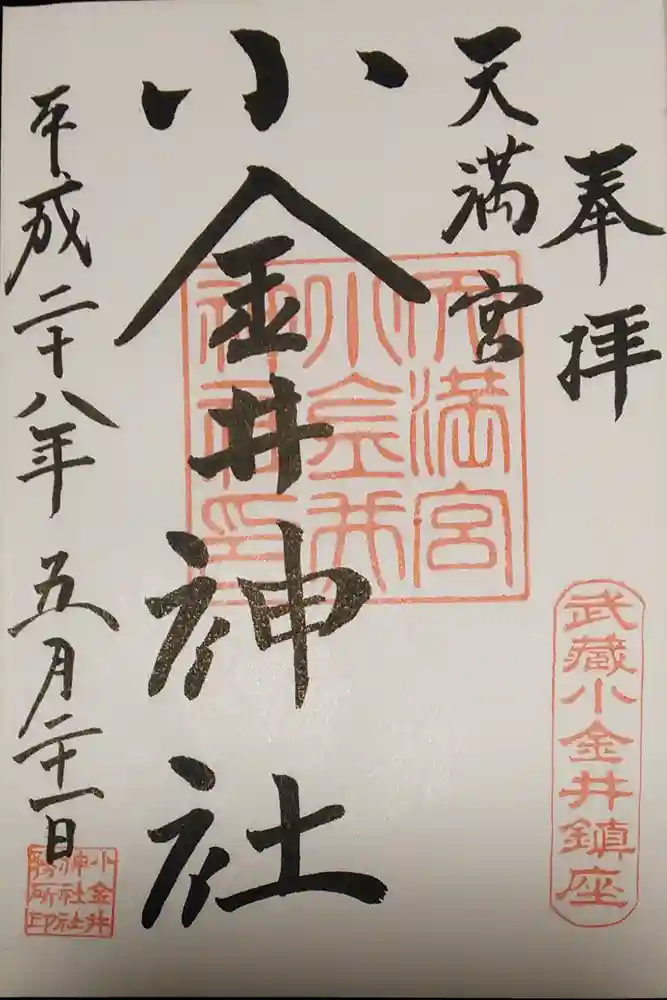 奉拝
武蔵小金井鎮座
天満宮
小金井神社
天満宮
小金井
神社印
平成二十八年五月二十一日
小金井
神社社
務所印